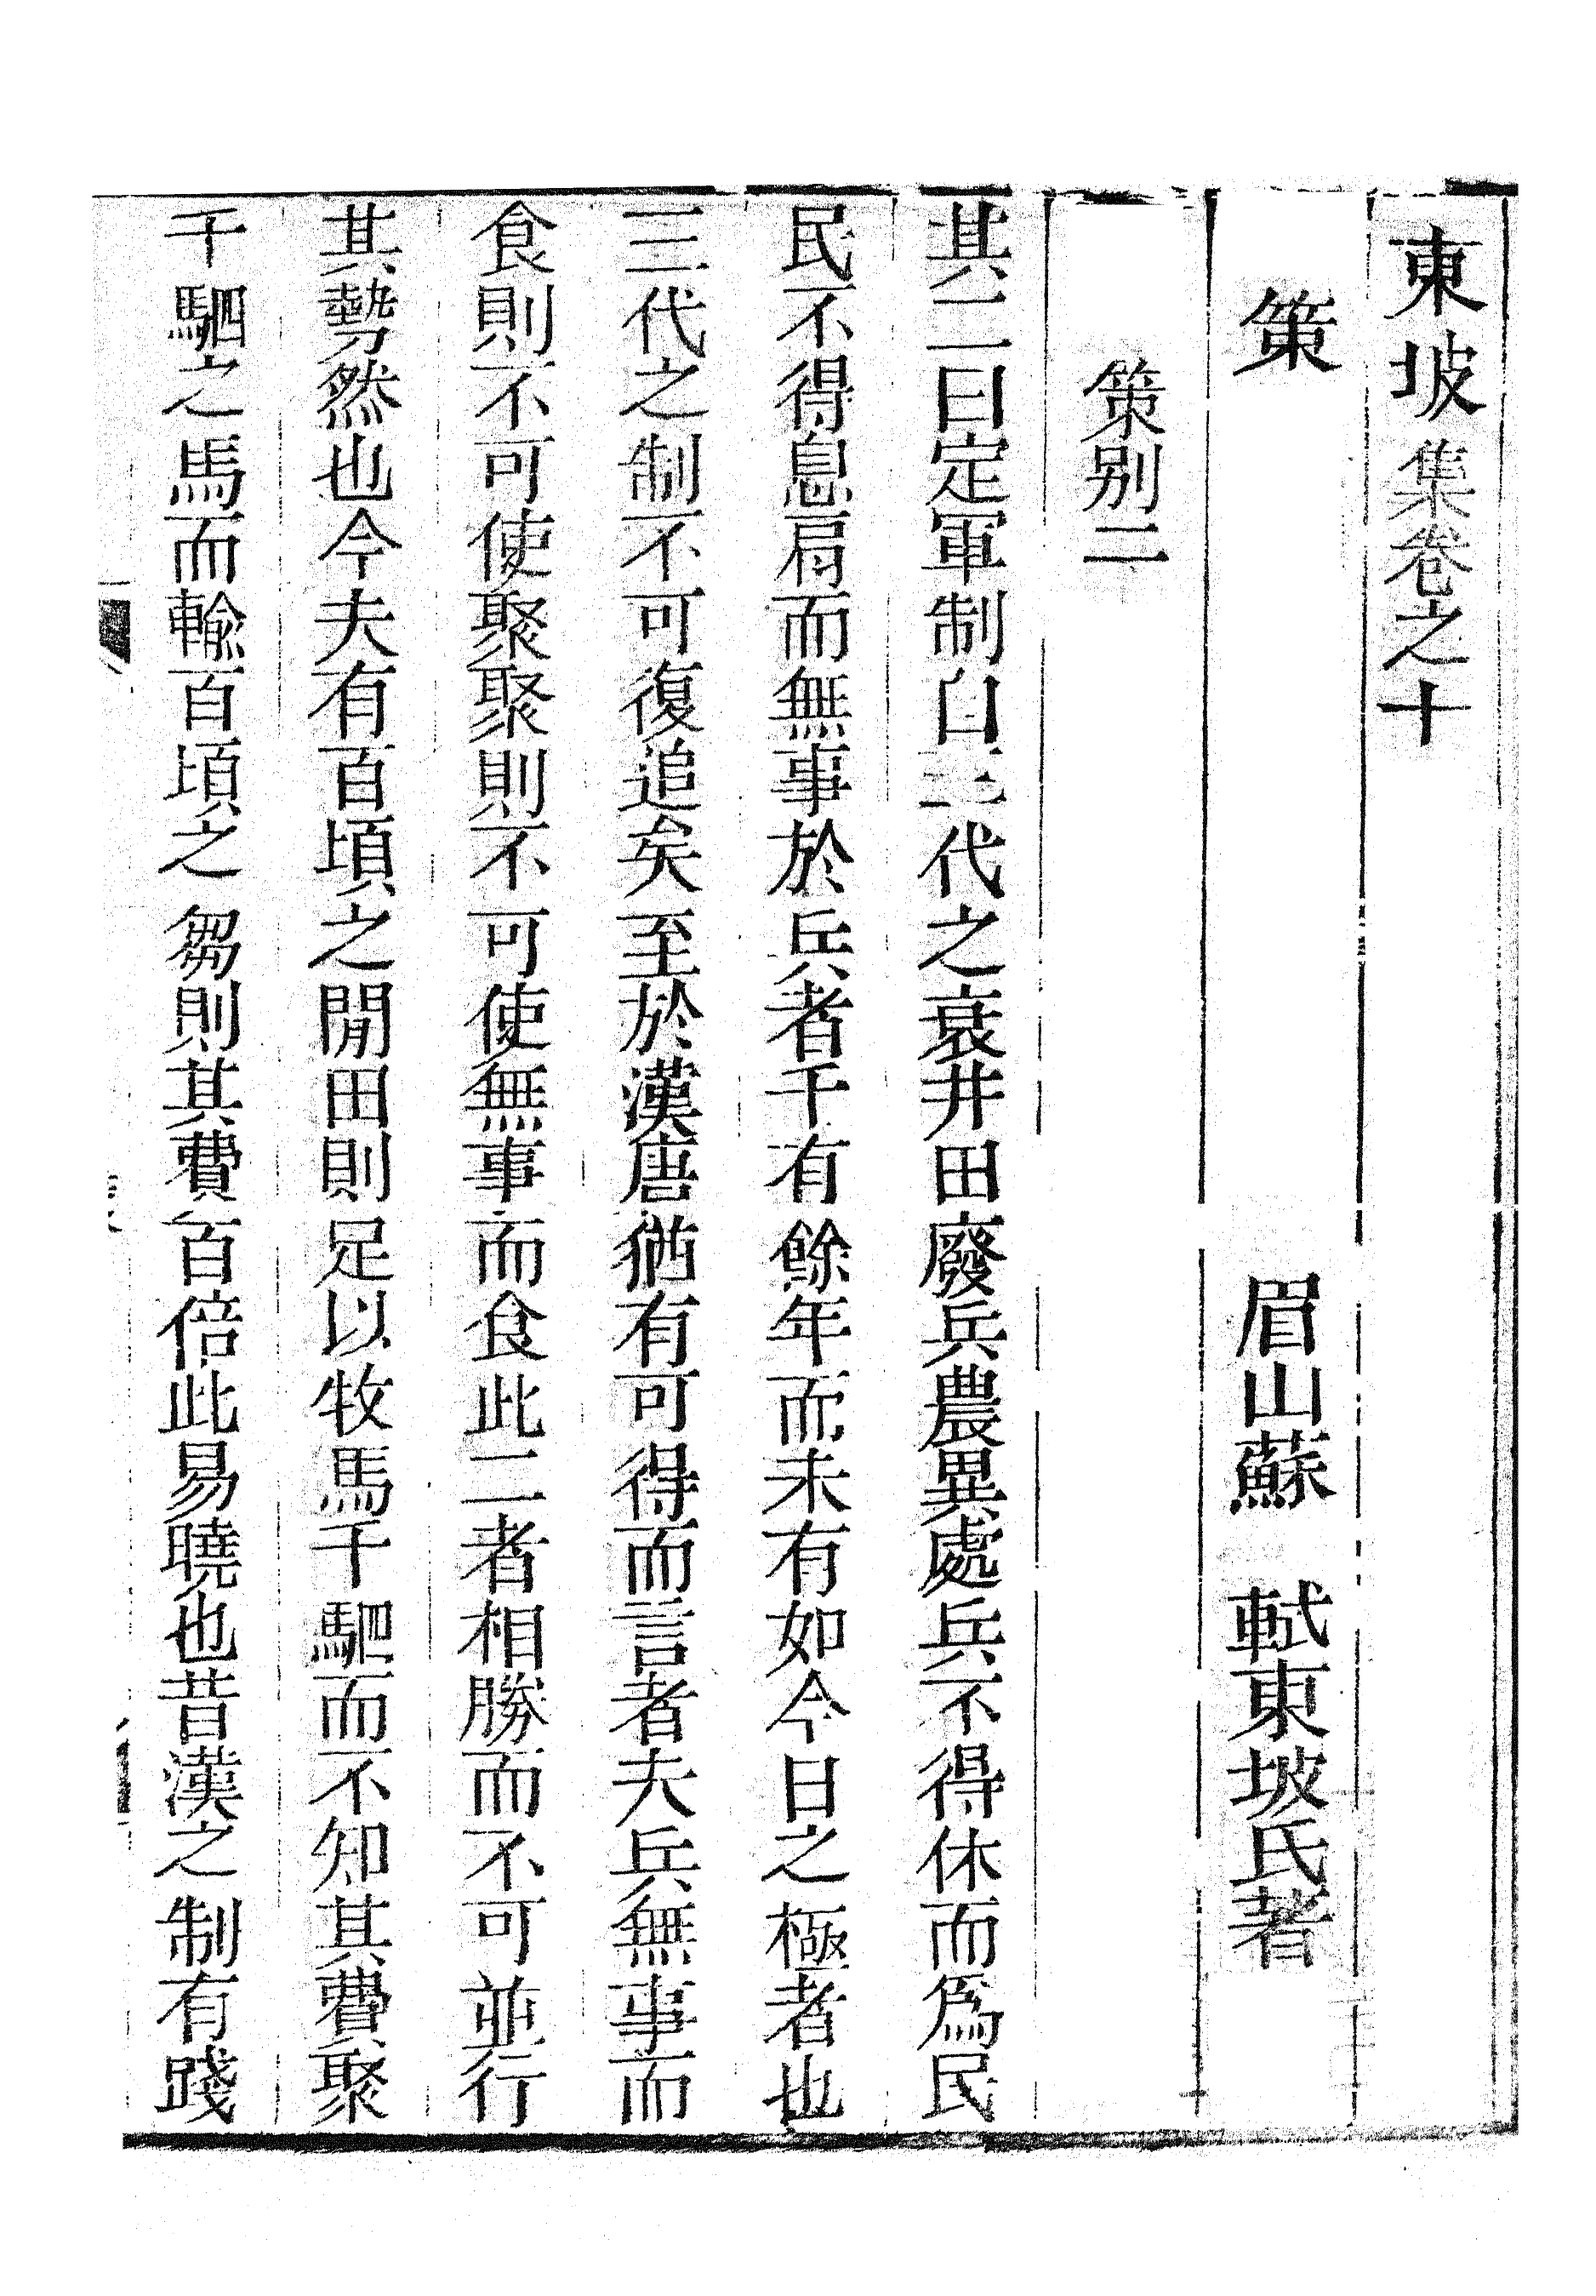 東坡集卷之十
策　眉山蘇　軾東坡氏著
策別二
其二曰定軍制自三代之衰井田廢兵農異處兵不得休而爲民
民不得息肩而無事於兵者千有餘年而未有如今日之極者也
三代之制不可復追矣至於漢唐猶有可得而言者夫兵無事而
食則不可使聚聚則不可使無事而食此二者相勝而不可並行
其勢然也今夫有百頃之閒田則足以牧馬千駟而不知其費聚
千駟之馬而輸百頃之芻則其費百倍此易曉也昔漢之制有踐